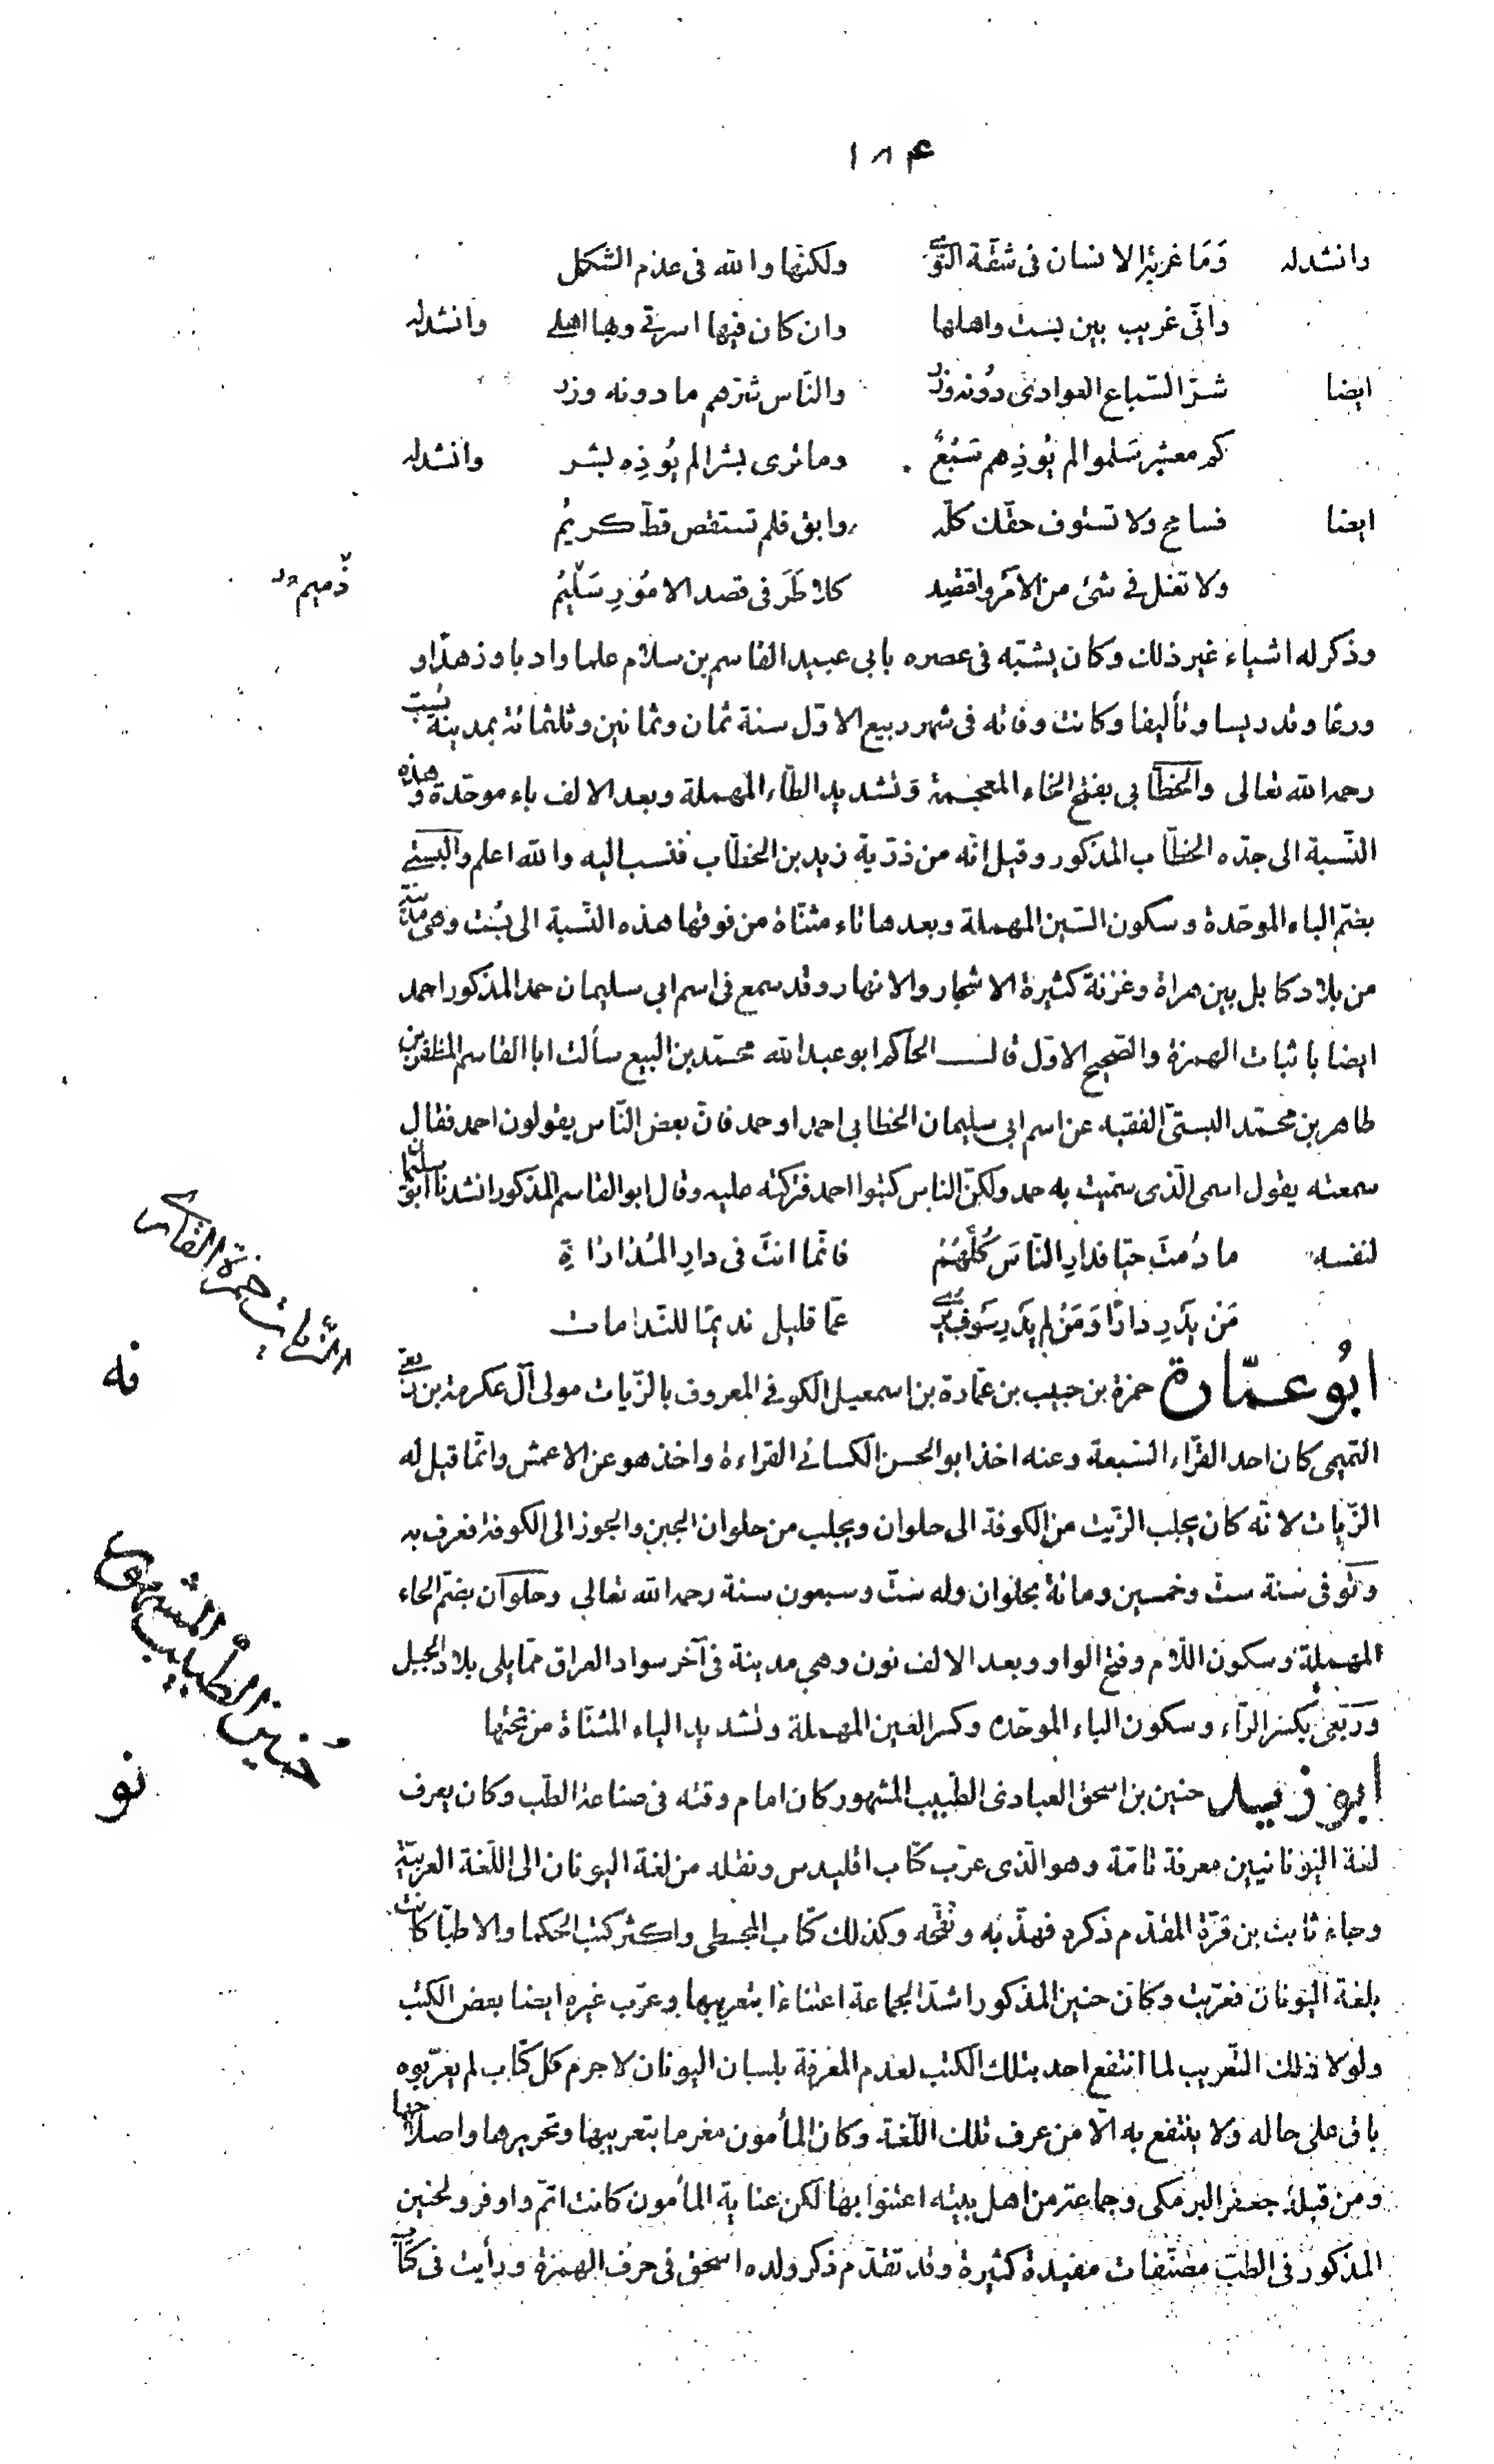 ١٨۴
وانشد له وَمَا غربة الانسان فى شقّة النّوى ولكنّها والله فى عدم الشكل
وانّى غريب بين بست واهلها وان كان فيها اسرتى وبها اهلى وانشد له
ايضا شرّ السّباع العوادى دُونه وزر والنّاس شرّهم ما دونه وزر
كم معشر سَلموا لم يُوذِهم سَبُعٌ وما نرى بشرا لم يُوذِه بشر وانشد له
ايضا فسامح ولا تستوف حقّك كلّه وابق فلم تستقص قطّ كريمُ
ولا تغل فى شئ من الامر واقتصِد كلا طَرَفى قصد الامُورِ سَلِيمُ ذَميم
وذكر له اشياء غير ذلك وكان يشبّه فى عصره بابى عبيد القاسم بن سلام علما وادبا وزهدًا و
ورعًا وتدريسا وتأليفا وكانت وفاته فى شهر ربيع الاوّل سنة ثمان وثمانين وثلثمائة بمدينة بُست
رحمه الله تعالى والخطّابى بفتح الخاء المعجمة وتشديد الطّاء المهملة وبعد الالف باء موحّدة وهذه
النّسبة الى جدّه الخطّاب المذكور وقيل انّه من ذرّية زيد بن الخطّاب فنسب اليه والله اعلم والبستى
بضمّ الباء الموحّدة وسكون السّين المهملة وبعدها تاء مثنّاة من فوقها هذه النّسبة الى بُست وهى مدينة
من بلاد كابل بين هراة وغزنة كثيرة الاشجار والانهار وقد سمع فى اسم ابى سليمان حمد المذكور احمد
ايضا باثبات الهمزة والصّحيح الاوّل قال الحاكم ابو عبد الله محمّد بن البيع سألت ابا القاسم المظفر بن
طاهر بن محمّد البستىّ الفقيه عن اسم ابى سليمان الخطابى احمد او حمد فانّ بعض النّاس يقولون احمد فقال
سمعته يقول اسمى الّذى سمّيت به حمد ولكنّ الناس كتبوا احمد فتركته عليه وقال ابو القاسم المذكور انشدنا ابو سليمان
لنفسه ما دُمتَ حيّا فدارِ النّاسَ كُلّهُمْ فانّما انتَ فى دارِ المُدارَاةِ
مَنْ يَدْرِ دارَا وَمَنْ لم يَدْرِ سَوفَ يُرى عمّا قليل نديمًا للنّدامات
ابُو عمّارة حمزة بن حبيب بن عمّارة بن اسمعيل الكوفى المعروف بالزّيات مولى آل عكرمة بن ربعى
التميمى كان احد القرّاء السّبعة وعنه اخذ ابو الحسن الكسائى القراءة واخذ هو عن الاعمش وانّما قيل له
الزّيات لانّه كان يجلب الزّيت من الكوفة الى حلوان ويجلب من حلوان الجبن والجوز الى الكوفة فعرف به
وتوفى سنة ستّ وخمسين ومائة بحلوان وله ستّ وسبعون سنة رحمه الله تعالى وحلوان بضمّ الحاء
المهملة وسكون اللّام وفتح الواو وبعد الالف نون وهى مدينة فى آخر سواد العراق ممّا يلى بلاد الجبل
ورَبعىّ بكسر الرّاء وسكون الباء الموحّده وكسر العين المهملة وتشديد الياء المثنّاة من تحتها
ابو زيد حنين بن اسحق العبادى الطّبيب المشهور كان امام وقته فى صناعة الطّب وكان يعرف
لغة اليونانيين معرفة تامّة وهو الّذى عرّب كتاب اقليدس ونقله من لغة اليونان الى اللّغة العربيّة
وجاء ثابت بن قرّة المقدّم ذكره فهذّبه ونقّحه وكذلك كتاب المجسطى واكثر كتب الحكما والاطبّا كانت
بلغة اليونان فعرّبت وكان حنين المذكور اشدّ الجماعة اعتناءً بتعريبها وعرّب غيره ايضا بعض الكتب
ولولا ذلك التّعريب لما انتفع احد بتلك الكتب لعدم المعرفة بلسان اليونان لا جرم كل كتاب لم يعرّبوه
باق على حاله ولا ينتفع به الّا من عرف تلك اللّغة وكان المأمون مغرما بتعريبها وتحريرها واصلاحها
ومن قبلهُ جعفر البرمكى وجماعة من اهل بيته اعتنوا بها لكن عناية المأمون كانت اتمّ واوفر ولحنين
المذكور فى الطبّ مصنّفات مفيدة كثيرة وقد تقدّم ذكر ولده اسحق فى حرف الهمزة ورأيت فى كتاب
الزّيات حمزة القارى
نه
حُنين الطّبيب المشهور
نو